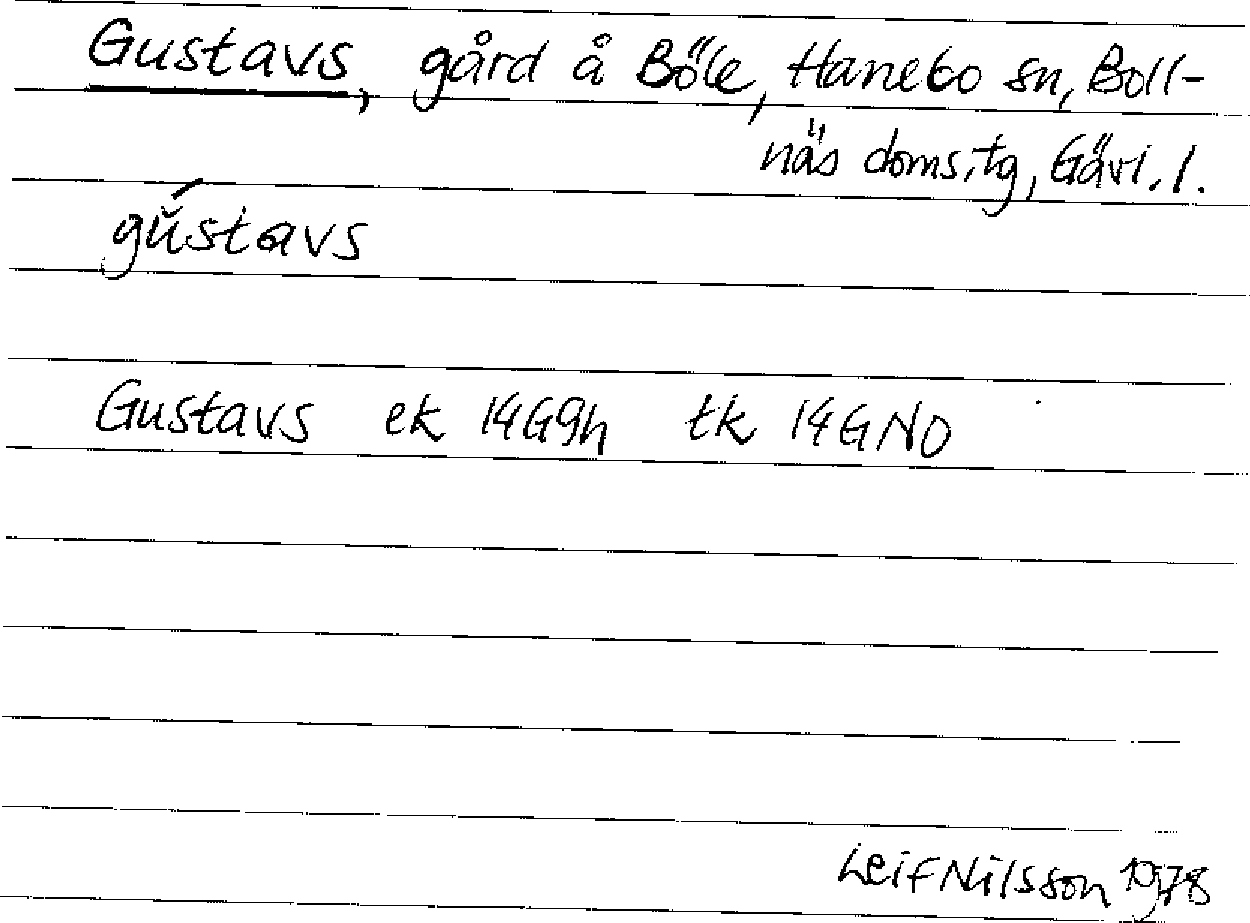 Gustavs, gård å Böle, Hanebo sn, Boll-
näs doms.tg, Gävl. l.
gŭ́stavs
Gustavs ek 14G9h tk 14GNO
Leif Nilsson 1978